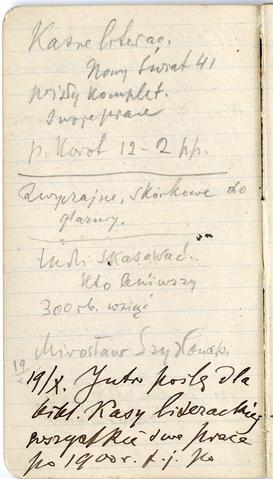 Kasie literac.
Nowy Świat 41
komplet.
Swoje prace
p. Korot 12-2 pp.
Zwyczajne, skórkowe do
glazury.
skasować.
Kto
300 rb. wziąć
Mirosław Szydłowsk.
19
19/X. Jutro poślę dla
bibl. Kasy literackiej
wszystkie swe prace
po 1900 r. t. j. po